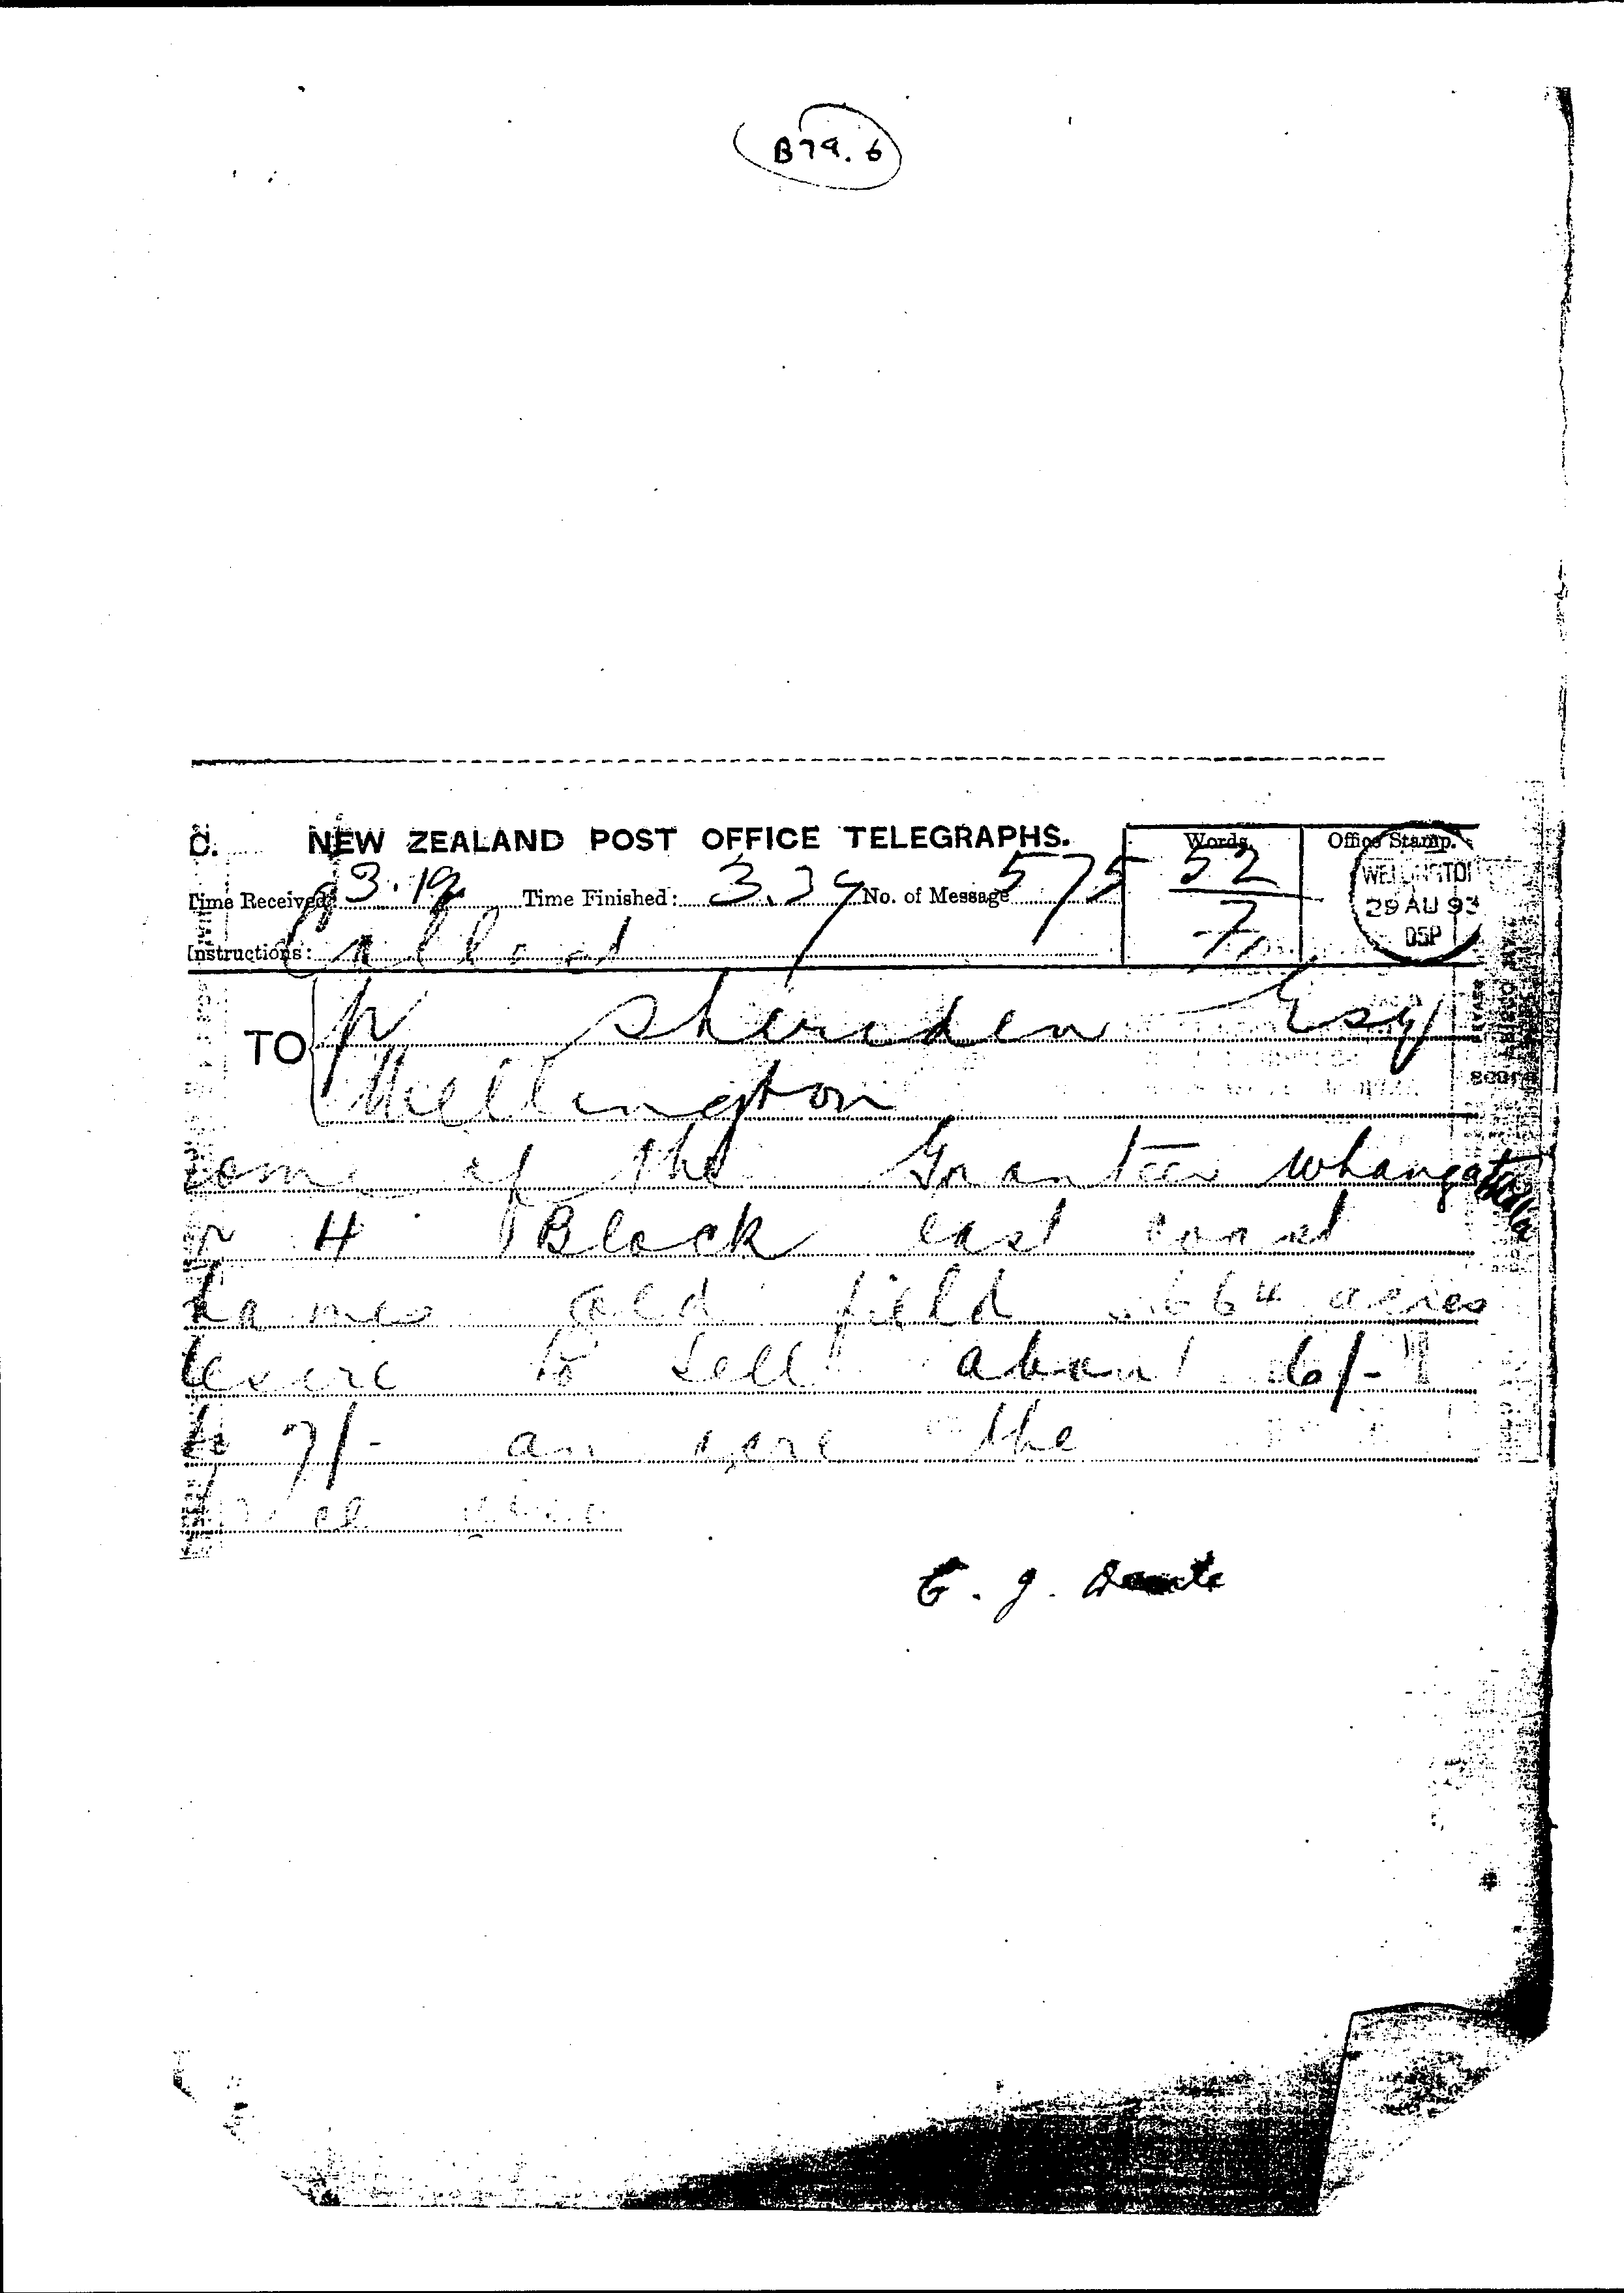 B79.6
C. NEW ZEALAND POST OFFICE TELEGRAPHS. Words. Office Stamp.
Time Received: 3.19 Time Finished: 3.39 No. of Message 575 52
WELLINGTON
29 AU 93
05P
Instructions:
TO P Sheridan Esq
Wellington
some of the Grantees Whangat
4 Block east coast
Thames old field 664 acres
desire to sell about 6/-
to 7/- an acre the
E. J.